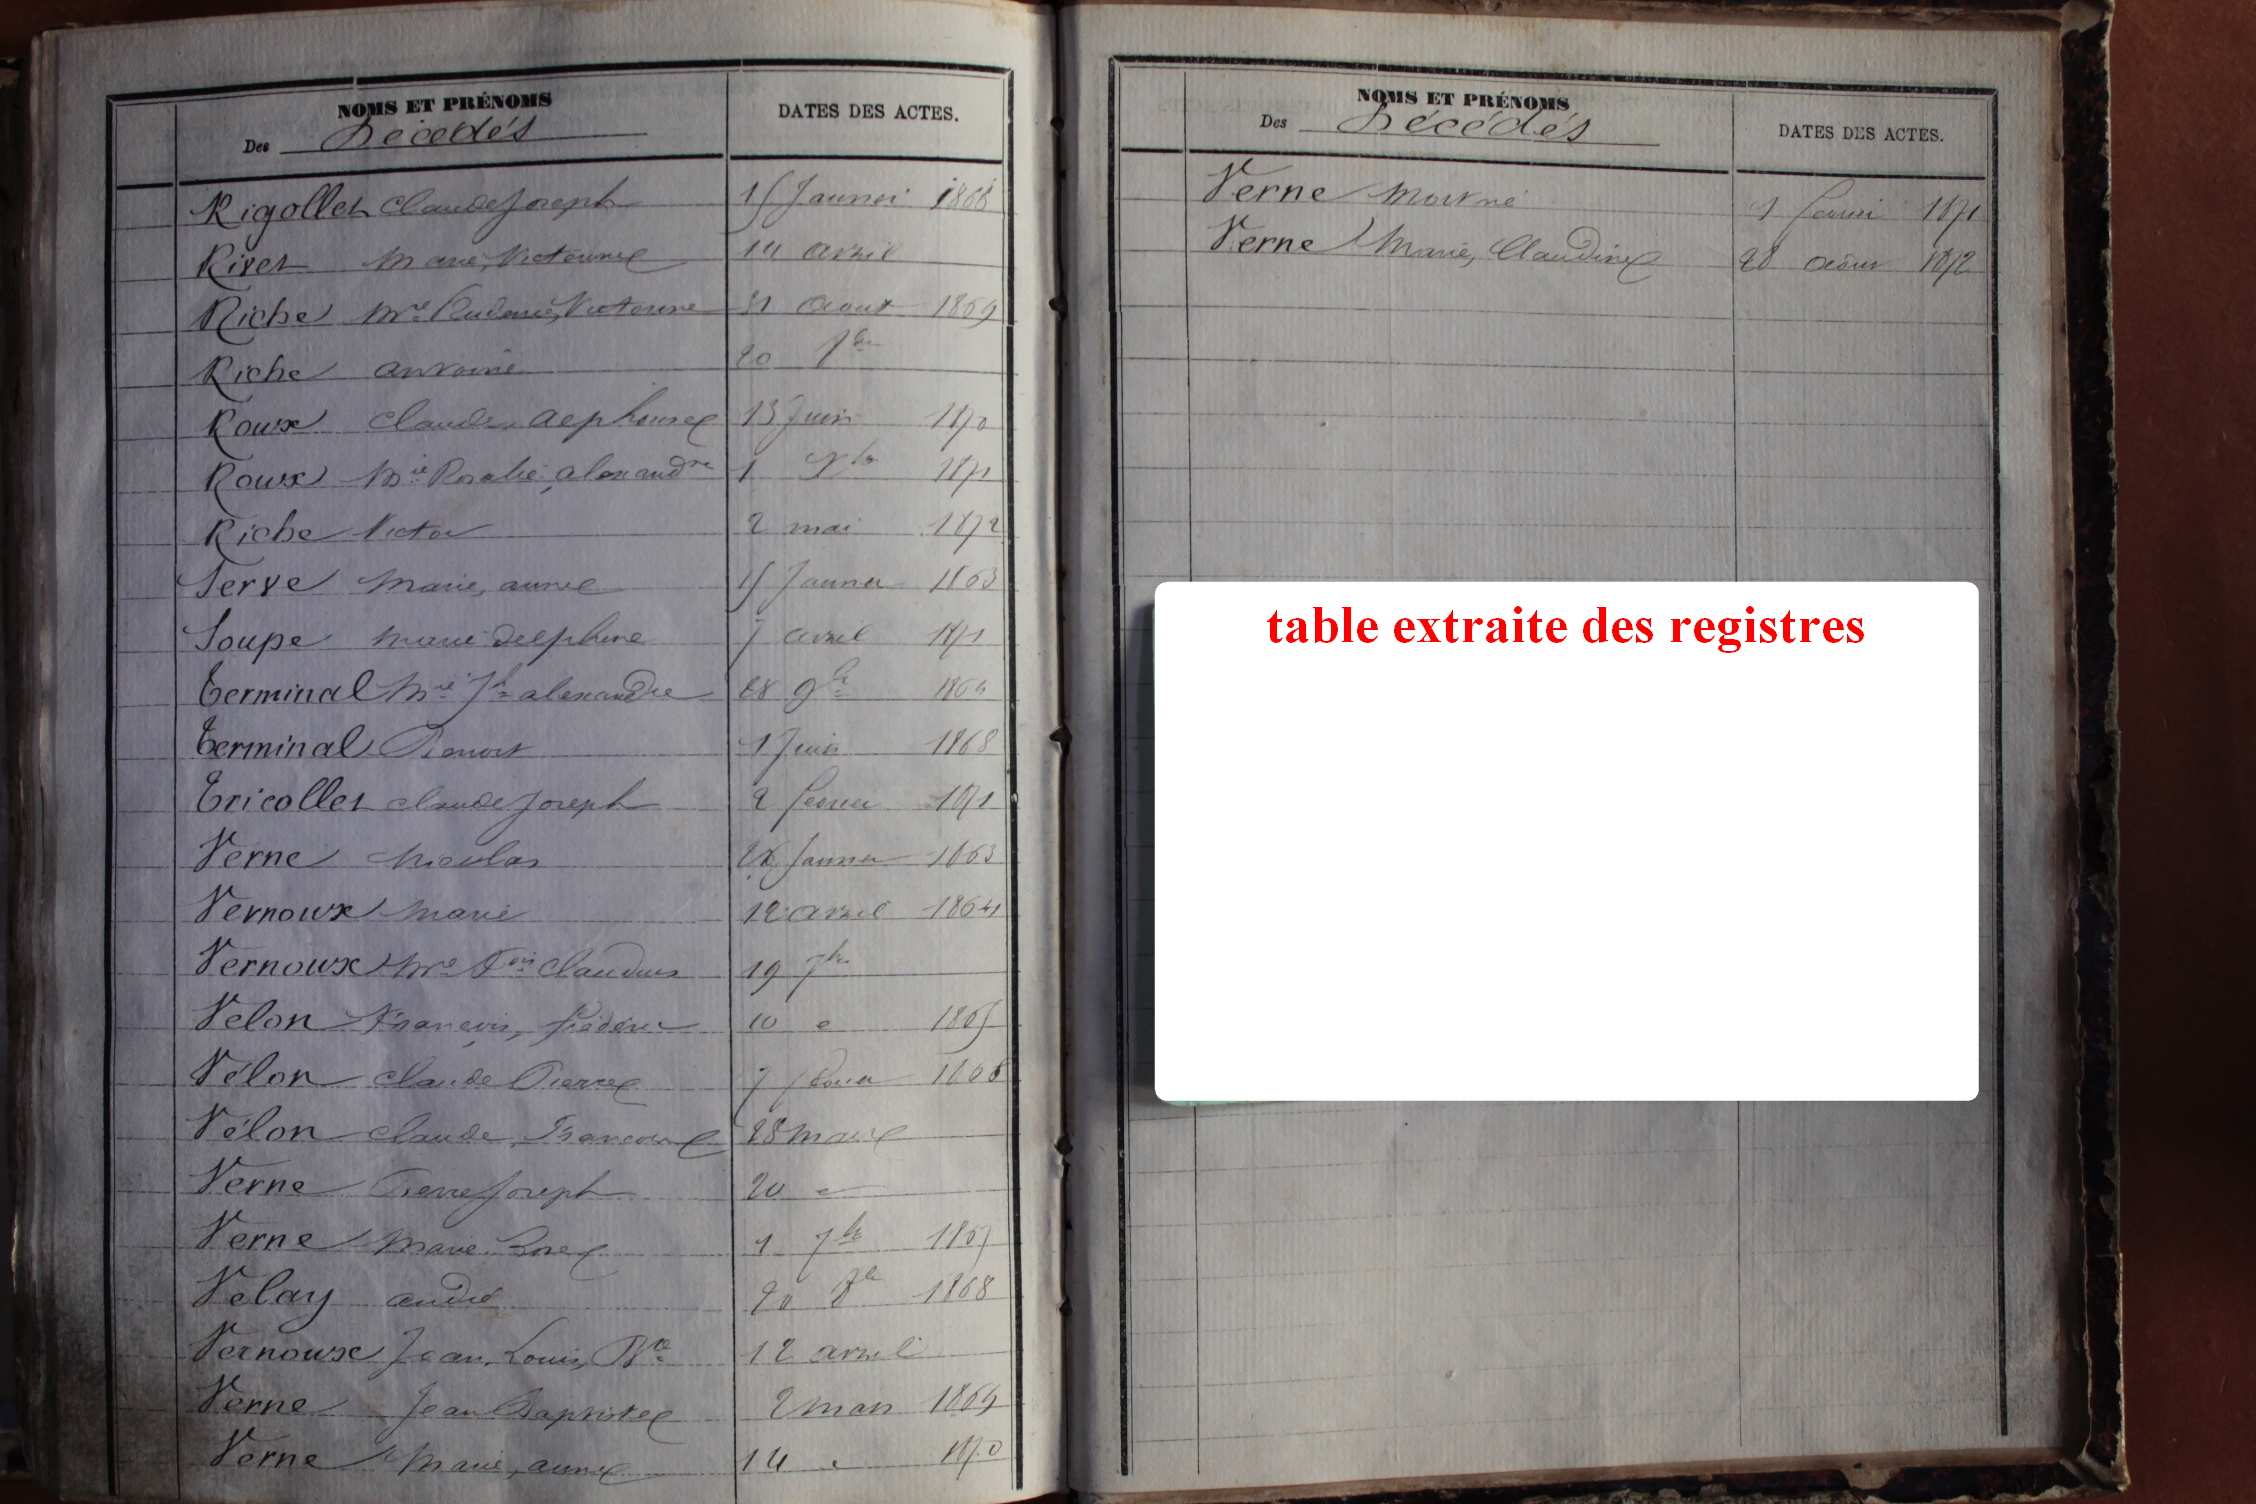 NOMS ET PRÉNOMS
Des Décédés
DATES DES ACTES.
Rigollet Claude Joseph 15 Janvier 1866
Rivet Marie, Victorine 14 avril
Riche Mie Victorine 31 aout 1869
Riche antoine 20
Roux Claude alphonse 13 Juin 1870
Roux Mie Rosalie alexandre 1 1871
Riche Victor 2 mai 1872
Serve Marie, anne 15 Janvier 1863
Soupe marie delphine 7 avril 1871
Terminal Mie Jh alexandre 28 9bre 1864
Terminal Benoit 1 Juin 1868
Tricollet Claude Joseph 2 fevrier 1871
Verne Nicolas Janvier 1863
Vernoux Marie 12 avril 1864
Vernoux 19 7bre
Velon François, 10 1865
Vélon Claude Pierre 7 1866
Vélon Claude, 28 mars
Verne Pierre Joseph 20
Verne Marie Rose 1 7bre 1867
Velay andré 20 1868
Vernoux Jean, Louis, Bte 12 avril
Verne Jean Baptiste 2 mars 1869
Verne Marie, anne 14 1870
NOMS ET PRÉNOMS
Des Décédés
DATES DES ACTES.
Verne Mort né 1 fevrier 1871
Verne Marie, Claudine 28 aout 1872
table extraite des registres